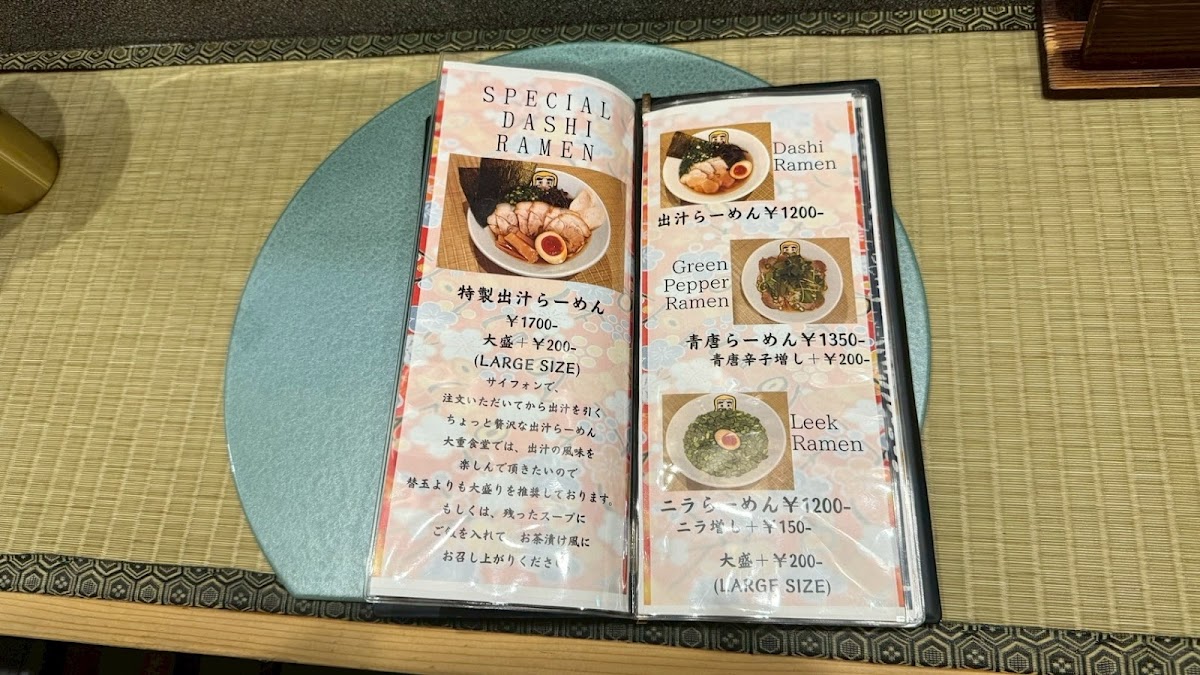 SPECIAL
DASHI
RAMEN
特製出汁らーめん
¥1700-
大盛+¥200-
(LARGE SIZE)
サイフォンで、
注文いただいてから出汁を引く
ちょっと贅沢な出汁らーめん
大重食堂では、出汁の風味を
楽しんで頂きたいので
替玉よりも大盛りを推奨しております。
もしくは、残ったスープに
ご飯を入れて お茶漬け風に
お召し上がりください
Dashi
Ramen
出汁らーめん¥1200-
Green
Pepper
Ramen
青唐らーめん¥1350-
青唐辛子増し+¥200-
Leek
Ramen
ニラらーめん¥1200-
ニラ増し+¥150-
大盛+¥200-
(LARGE SIZE)